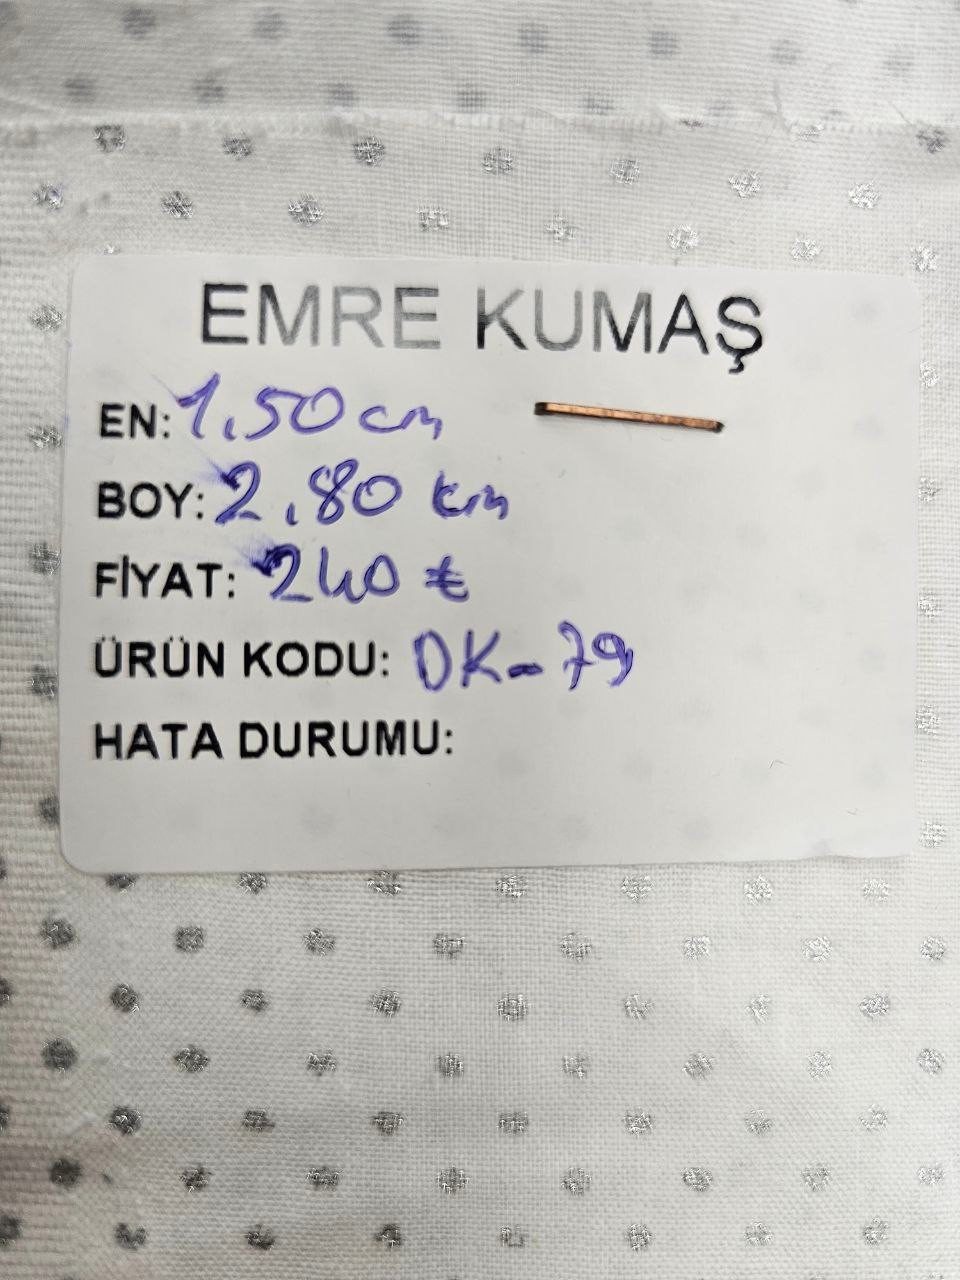 EMRE KUMAŞ
EN: 1.50 cm
BOY: 2.80 cm
FİYAT: 240 ₺
ÜRÜN KODU: DK-79
HATA DURUMU: